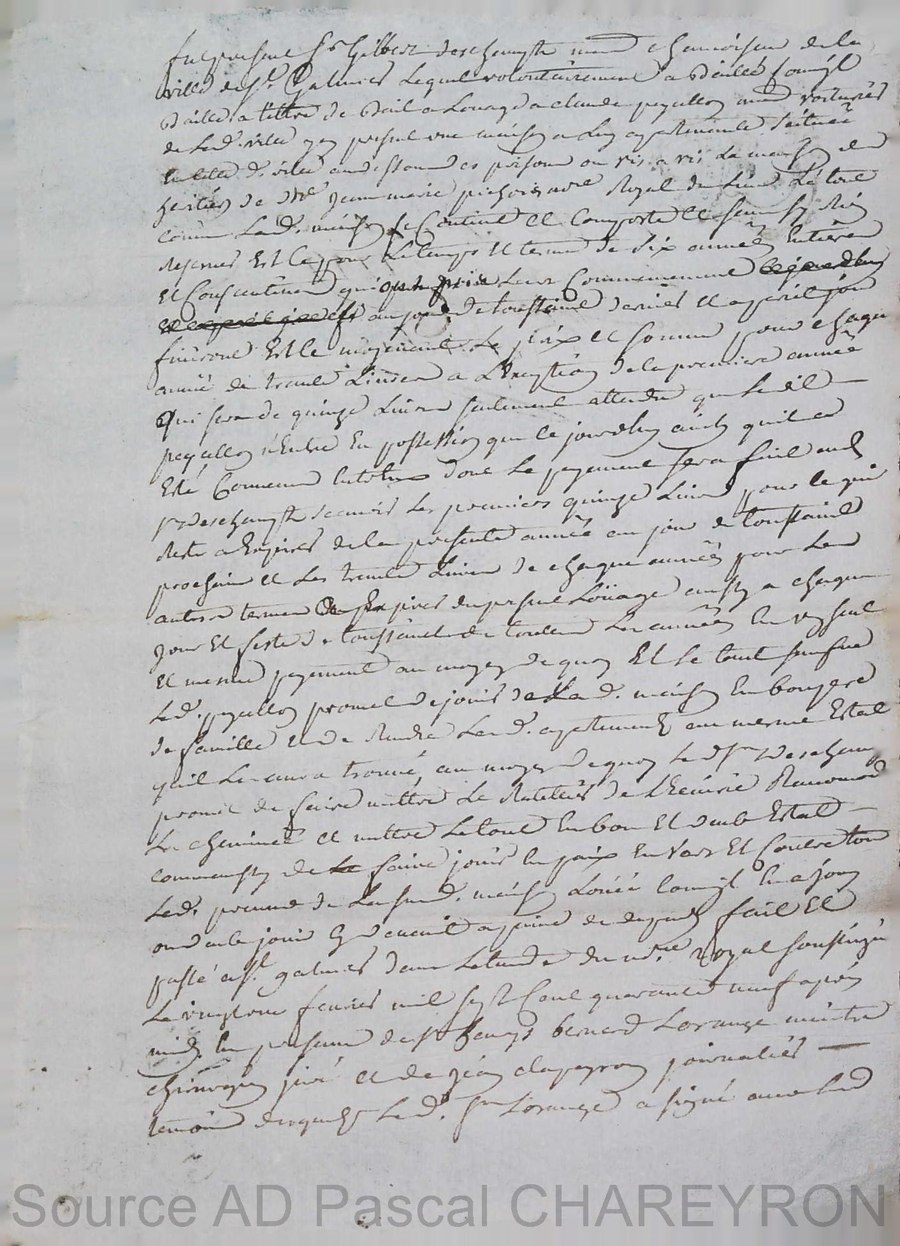 fut present Sr Gilbert deschampts md chamoiseur de la
ville de St Galmier Lequel volontairement a Baillé comme il
Baille a tittre de Bail a Louage a claude peyallon aud voiturier
de Lad. ville icy present une maison a Luy apartenante scituée
en lad. ville au dessous des prisons ou vis a vis La maison des
heritiers de Me Jean marie pichois nore Royal du Lieu Le tout
comme Lad. maison se Contient et Comporte et sans sy Rien
Reserver Est ce pour Le temps et terme de six années Entieres
Et Consecutives qui ont pris Leur Commencement
au jour de toussaint dernier et a pareil jour
finiront Est ce moyenant Le prix et somme pour chaque
année de trente Livres a L'Exception de la premiere année
Qui sera de quinze Livres seulement attendu que Le dit
peyallon n'Entre En possession que ce jourdhuy ainsy quil a
Esté Convenu Entreux dont Le payement sera fait aud
Sr deschampts scavoir Les premiers quinze Livres pour ce qui
Reste a Expirer de la presente année au jour de toussaint
prochain et Les trente Livres de chaque année pour Les
autres termes du present Loüage aussy a chaque
jour Et feste de toussaint de toutes Les années En un seul
Et mesme payement au moyen de quoy Et Le tout
Led. peyallon promet de jouir de La d. maison En bon pere
de famille Et de Rendre Lesd. apartements au mesme Estat
quil Les aura trouvé, au moyen de quoy Led Sr Deschampts
promet de faire mettre Le Ratellier de L'Ecurie Racomoder
La cheminée et mettre Le tout En bon Et deub Estat
comme aussy de Le faire jouir En paix Envers Et Contre tous
Led. preneur de La susd. maison Loüée comme il En a jouy
ou deub jouir cy devant a peine de depens fait Et
passé a St galmier dans Letude du nore Royal soussigné
Le vingt fevrier mil sept Cent quarante neuf apres
midy En presence de Sr bernard Lorange maitre
chirurgien juré et de jean clapeyron journalier
temoins desquels Led. Sr Lorange a signé avec Led
Source AD Pascal CHAREYRON